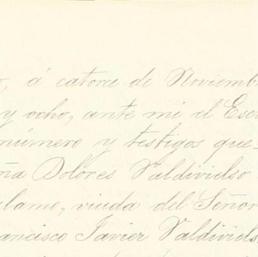 á catorce de Noviemb
y ocho, ante mi el Escr
número y testigos que
ña Dolores Valdivielso
viuda del Señor
rancisco Javier Valdiviels